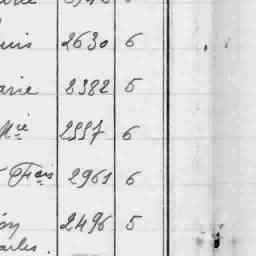 uis 2630 6
arie 8382 5
Mie 2557 6
Frois 2961 6
2496 5
arles.